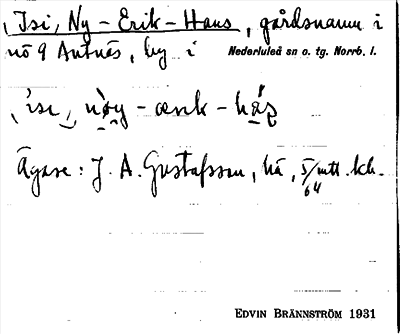 Isi, Ny-Erik-Hans, gårdsnamn i
nö 9 Antnäs, by i Nederluleå sn o. tg. Norrb. l.
Ägare: J. A. Gustafsson, hä, 5/64 mtt.
EDVIN BRÄNNSTRÖM 1931